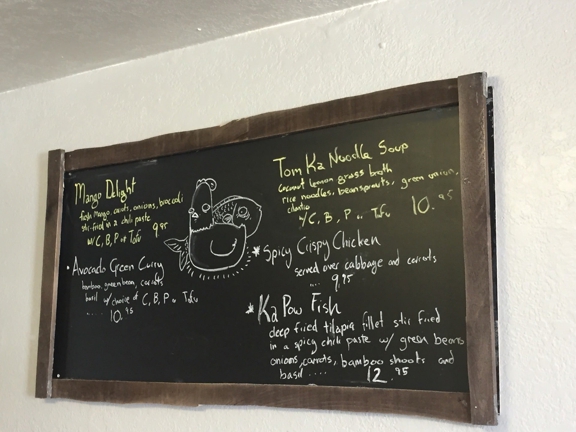 Mango Delight
fresh mango, carrots, onions, broccoli
stir-fried in a chili paste
w/C, B, P or Tofu 9.95
• Avocado Green Curry
bamboo, green bean, carrots,
basil w/ choice of C, B, P or Tofu
..... 10.95
Tom Ka Noodle Soup
coconut lemon grass broth
rice noodles, bean sprouts, green onion,
cilantro
w/C, B, P or Tofu 10.95
* Spicy Crispy Chicken
served over cabbage and carrots
... 9.95
* Ka Pow Fish
deep fried tilapia fillet stir fried
in a spicy chili paste w/ green beans
onions, carrots, bamboo shoots and
basil .... 12.95